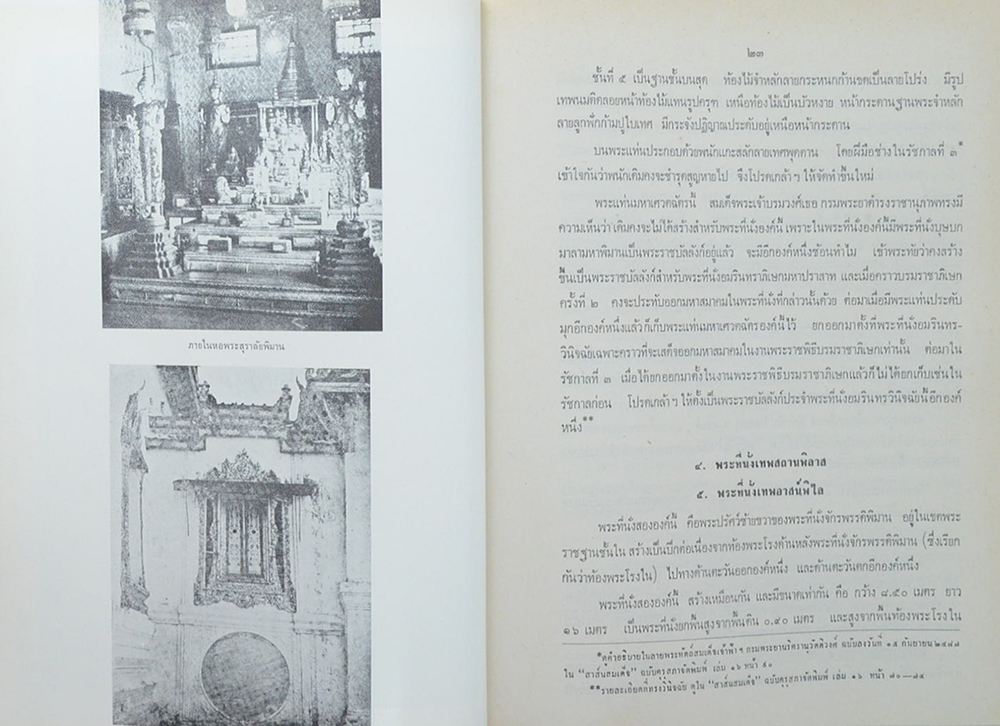 ภายในหอพระสุราลัยพิมาน
๒๓
ชั้นที่ ๕ เป็นฐานชั้นบนสุด ท้องไม้จำหลักลายกระหนกก้านขดเป็นลายโปร่ง มีรูป
เทพนมติดลอยหน้าท้องไม้แทนรูปครุฑ เหนือท้องไม้เป็นบัวหงาย หน้ากระดานฐานพระจำหลัก
ลายลูกฟักก้ามปูใบเทศ มีกระจังปฏิญาณประดับอยู่เหนือหน้ากระดาน
บนพระแท่นประกอบด้วยพนักแกะสลักลายเทศพุดตาน โดยฝีมือช่างในรัชกาลที่ ๓*
เข้าใจกันว่าพนักเดิมคงจะชำรุดสูญหายไป จึงโปรดเกล้าฯ ให้จัดทำขึ้นใหม่
พระแท่นมหาเศวตฉัตรนี้ สมเด็จพระเจ้าบรมวงศ์เธอ กรมพระยาดำรงราชานุภาพทรงมี
ความเห็นว่า เดิมคงจะไม่ได้สร้างสำหรับพระที่นั่งองค์นี้ เพราะในพระที่นั่งองค์นี้มีพระที่นั่งบุษบก
มาลามหาพิมานเป็นพระราชบัลลังก์อยู่แล้ว จะมีอีกองค์หนึ่งซ้อนทำไม เข้าพระทัยว่าคงสร้าง
ขึ้นเป็นพระราชบัลลังก์สำหรับพระที่นั่งอมรินทราภิเษกมหาปราสาท และเมื่อคราวบรมราชาภิเษก
ครั้งที่ ๒ คงจะประทับออกมหาสมาคมในพระที่นั่งที่กล่าวนั้นด้วย ต่อมาเมื่อมีพระแท่นประดับ
มุกอีกองค์หนึ่งแล้วก็เก็บพระแท่นมหาเศวตฉัตรองค์นี้ไว้ ยกออกมาตั้งที่พระที่นั่งอมรินทร-
วินิจฉัยเฉพาะคราวที่จะเสด็จออกมหาสมาคมในงานพระราชพิธีบรมราชาภิเษกเท่านั้น ต่อมาใน
รัชกาลที่ ๓ เมื่อได้ยกออกมาตั้งในงานพระราชพิธีบรมราชาภิเษกแล้วก็ไม่ได้ยกเก็บเช่นใน
รัชกาลก่อน โปรดเกล้าฯ ให้ตั้งเป็นพระราชบัลลังก์ประจำพระที่นั่งอมรินทรวินิจฉัยนี้อีกองค์
หนึ่ง**
๔. พระที่นั่งเทพสถานพิลาส
๕. พระที่นั่งเทพอาสน์พิไล
พระที่นั่งสององค์นี้ คือพระปรัศว์ซ้ายขวาของพระที่นั่งจักรพรรดิพิมาน อยู่ในเขตพระ
ราชฐานชั้นใน สร้างเป็นปีกต่อเนื่องจากท้องพระโรงด้านหลังพระที่นั่งจักรพรรดิพิมาน (ซึ่งเรียก
กันว่าท้องพระโรงใน) ไปทางด้านตะวันออกองค์หนึ่ง และด้านตะวันตกอีกองค์หนึ่ง
พระที่นั่งสององค์นี้ สร้างเหมือนกัน และมีขนาดเท่ากัน คือ กว้าง ๘.๕๐ เมตร ยาว
๑๖ เมตร เป็นพระที่นั่งยกพื้นสูงจากพื้นดิน ๐.๙๐ เมตร และสูงจากพื้นท้องพระโรงใน
*ดูคำอธิบายในลายพระหัตถ์สมเด็จเจ้าฟ้าฯ กรมพระยานริศรานุวัดติวงศ์ ฉบับลงวันที่ ๑๕ กันยายน ๒๔๘๒
ใน "สาส์นสมเด็จ" ฉบับคุรุสภาจัดพิมพ์ เล่ม ๑๖ หน้า ๙๐
**รายละเอียดที่ทรงวินิจฉัย ดูใน "สาส์นสมเด็จ" ฉบับคุรุสภาจัดพิมพ์ เล่ม ๑๖ หน้า ๘๐—๘๔